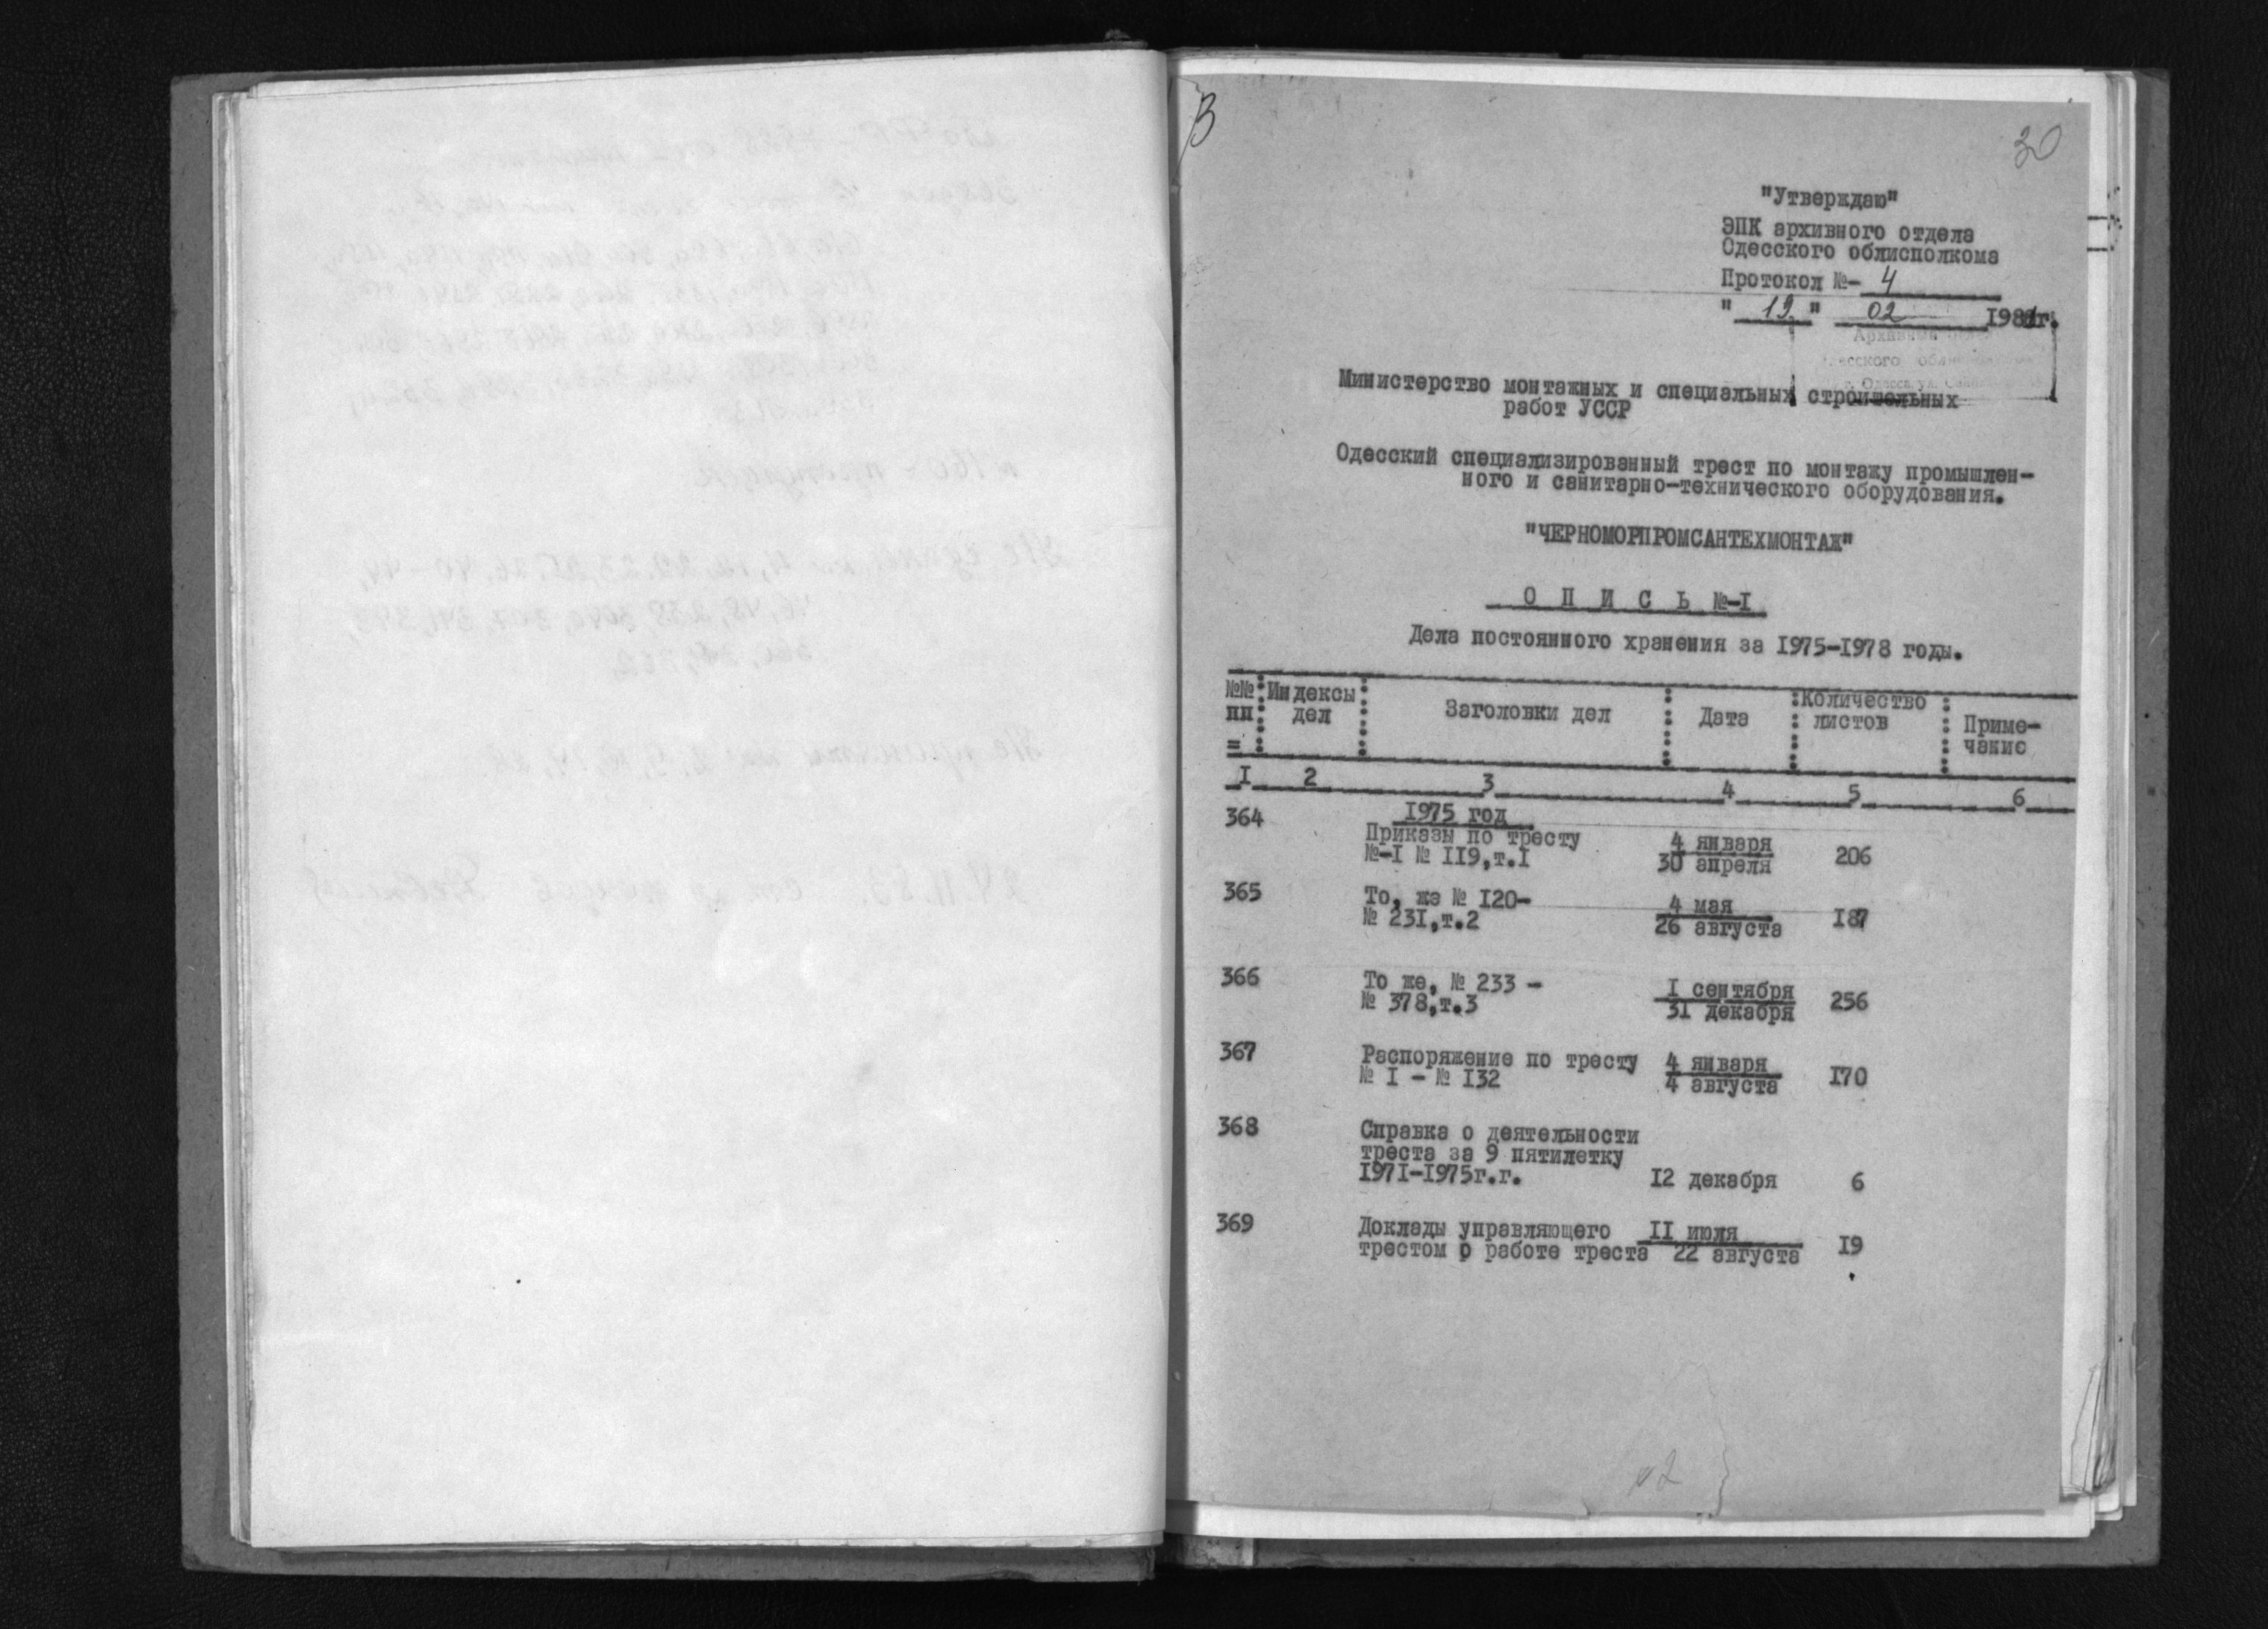 В
30
"Утверждаю"
ЭПК архивного отдела
Одесского облисполкома
Протокол №- 4
" 19 " 02 1981г.
Архивный отдел
Одесского
г. Одесса, ул.
Министерство монтажных и специальных строительных
работ УССР
Одесский специализированный трест по монтажу промышлен-
ного и санитарно-технического оборудования.
"ЧЕРНОМОРПРОМСАНТЕХМОНТАЖ"
О П И С Ь №-I
Дела постоянного хранения за 1975-1978 годы.
№№ пп Индексы дел Заголовки дел Дата Количество листов Приме-чание
I 2 3 4 5 6
1975 год
364 Приказы по тресту 4 января 206
№-I № II9,т.I 30 апреля
365 То, же № I20- 4 мая I87
№ 23I,т.2 26 августа
366 То же, № 233 - I сентября 256
№ 378,т.3 31 декабря
367 Распоряжение по тресту 4 января I70
№ I - № I32 4 августа
368 Справка о деятельности
треста за 9 пятилетку
I97I-I975г.г. I2 декабря 6
369 Доклады управляющего II июля I9
трестом о работе треста 22 августа